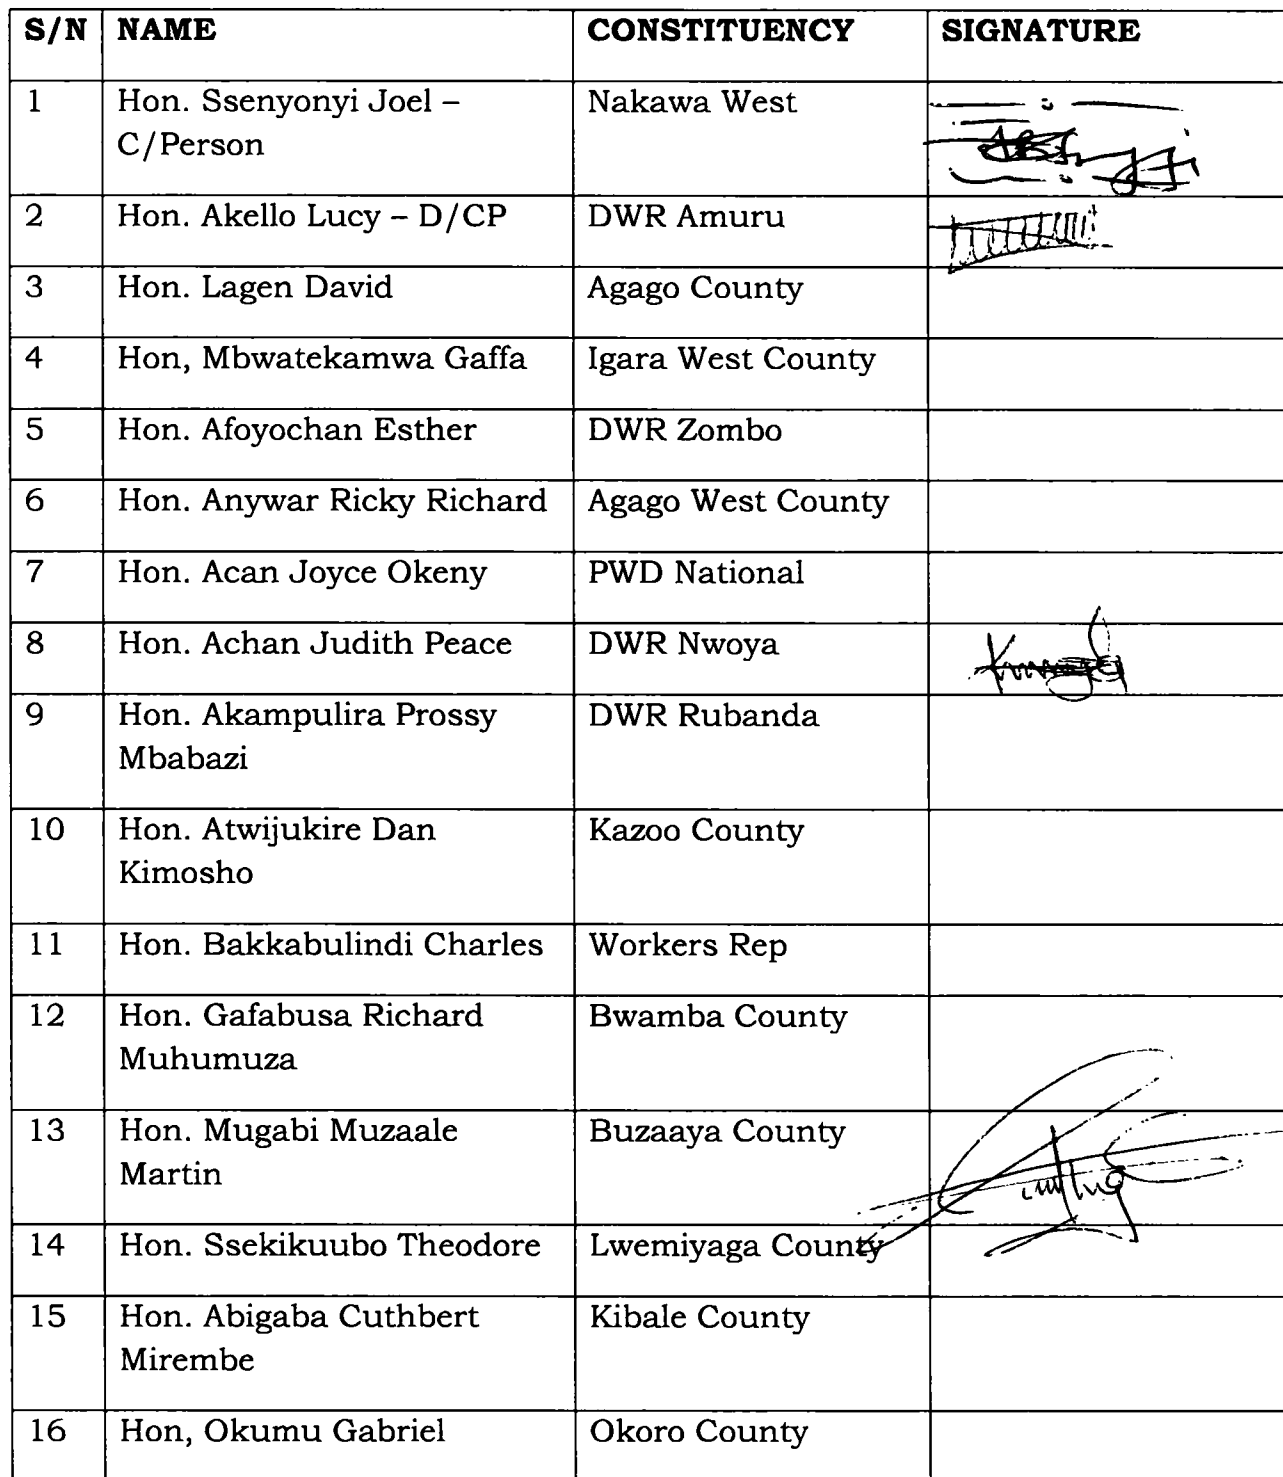 S/N NAME CONSTITUENCY SIGNATURE
1 Hon. Ssenyonyi Joel – Nakawa West
C/Person
2 Hon. Akello Lucy – D/CP DWR Amuru
3 Hon. Lagen David Agago County
4 Hon, Mbwatekamwa Gaffa Igara West County
5 Hon. Afoyochan Esther DWR Zombo
6 Hon. Anywar Ricky Richard Agago West County
7 Hon. Acan Joyce Okeny PWD National
8 Hon. Achan Judith Peace DWR Nwoya
9 Hon. Akampulira Prossy DWR Rubanda
Mbabazi
10 Hon. Atwijukire Dan Kazoo County
Kimosho
11 Hon. Bakkabulindi Charles Workers Rep
12 Hon. Gafabusa Richard Bwamba County
Muhumuza
13 Hon. Mugabi Muzaale Buzaaya County
Martin
14 Hon. Ssekikuubo Theodore Lwemiyaga County
15 Hon. Abigaba Cuthbert Kibale County
Mirembe
16 Hon, Okumu Gabriel Okoro County